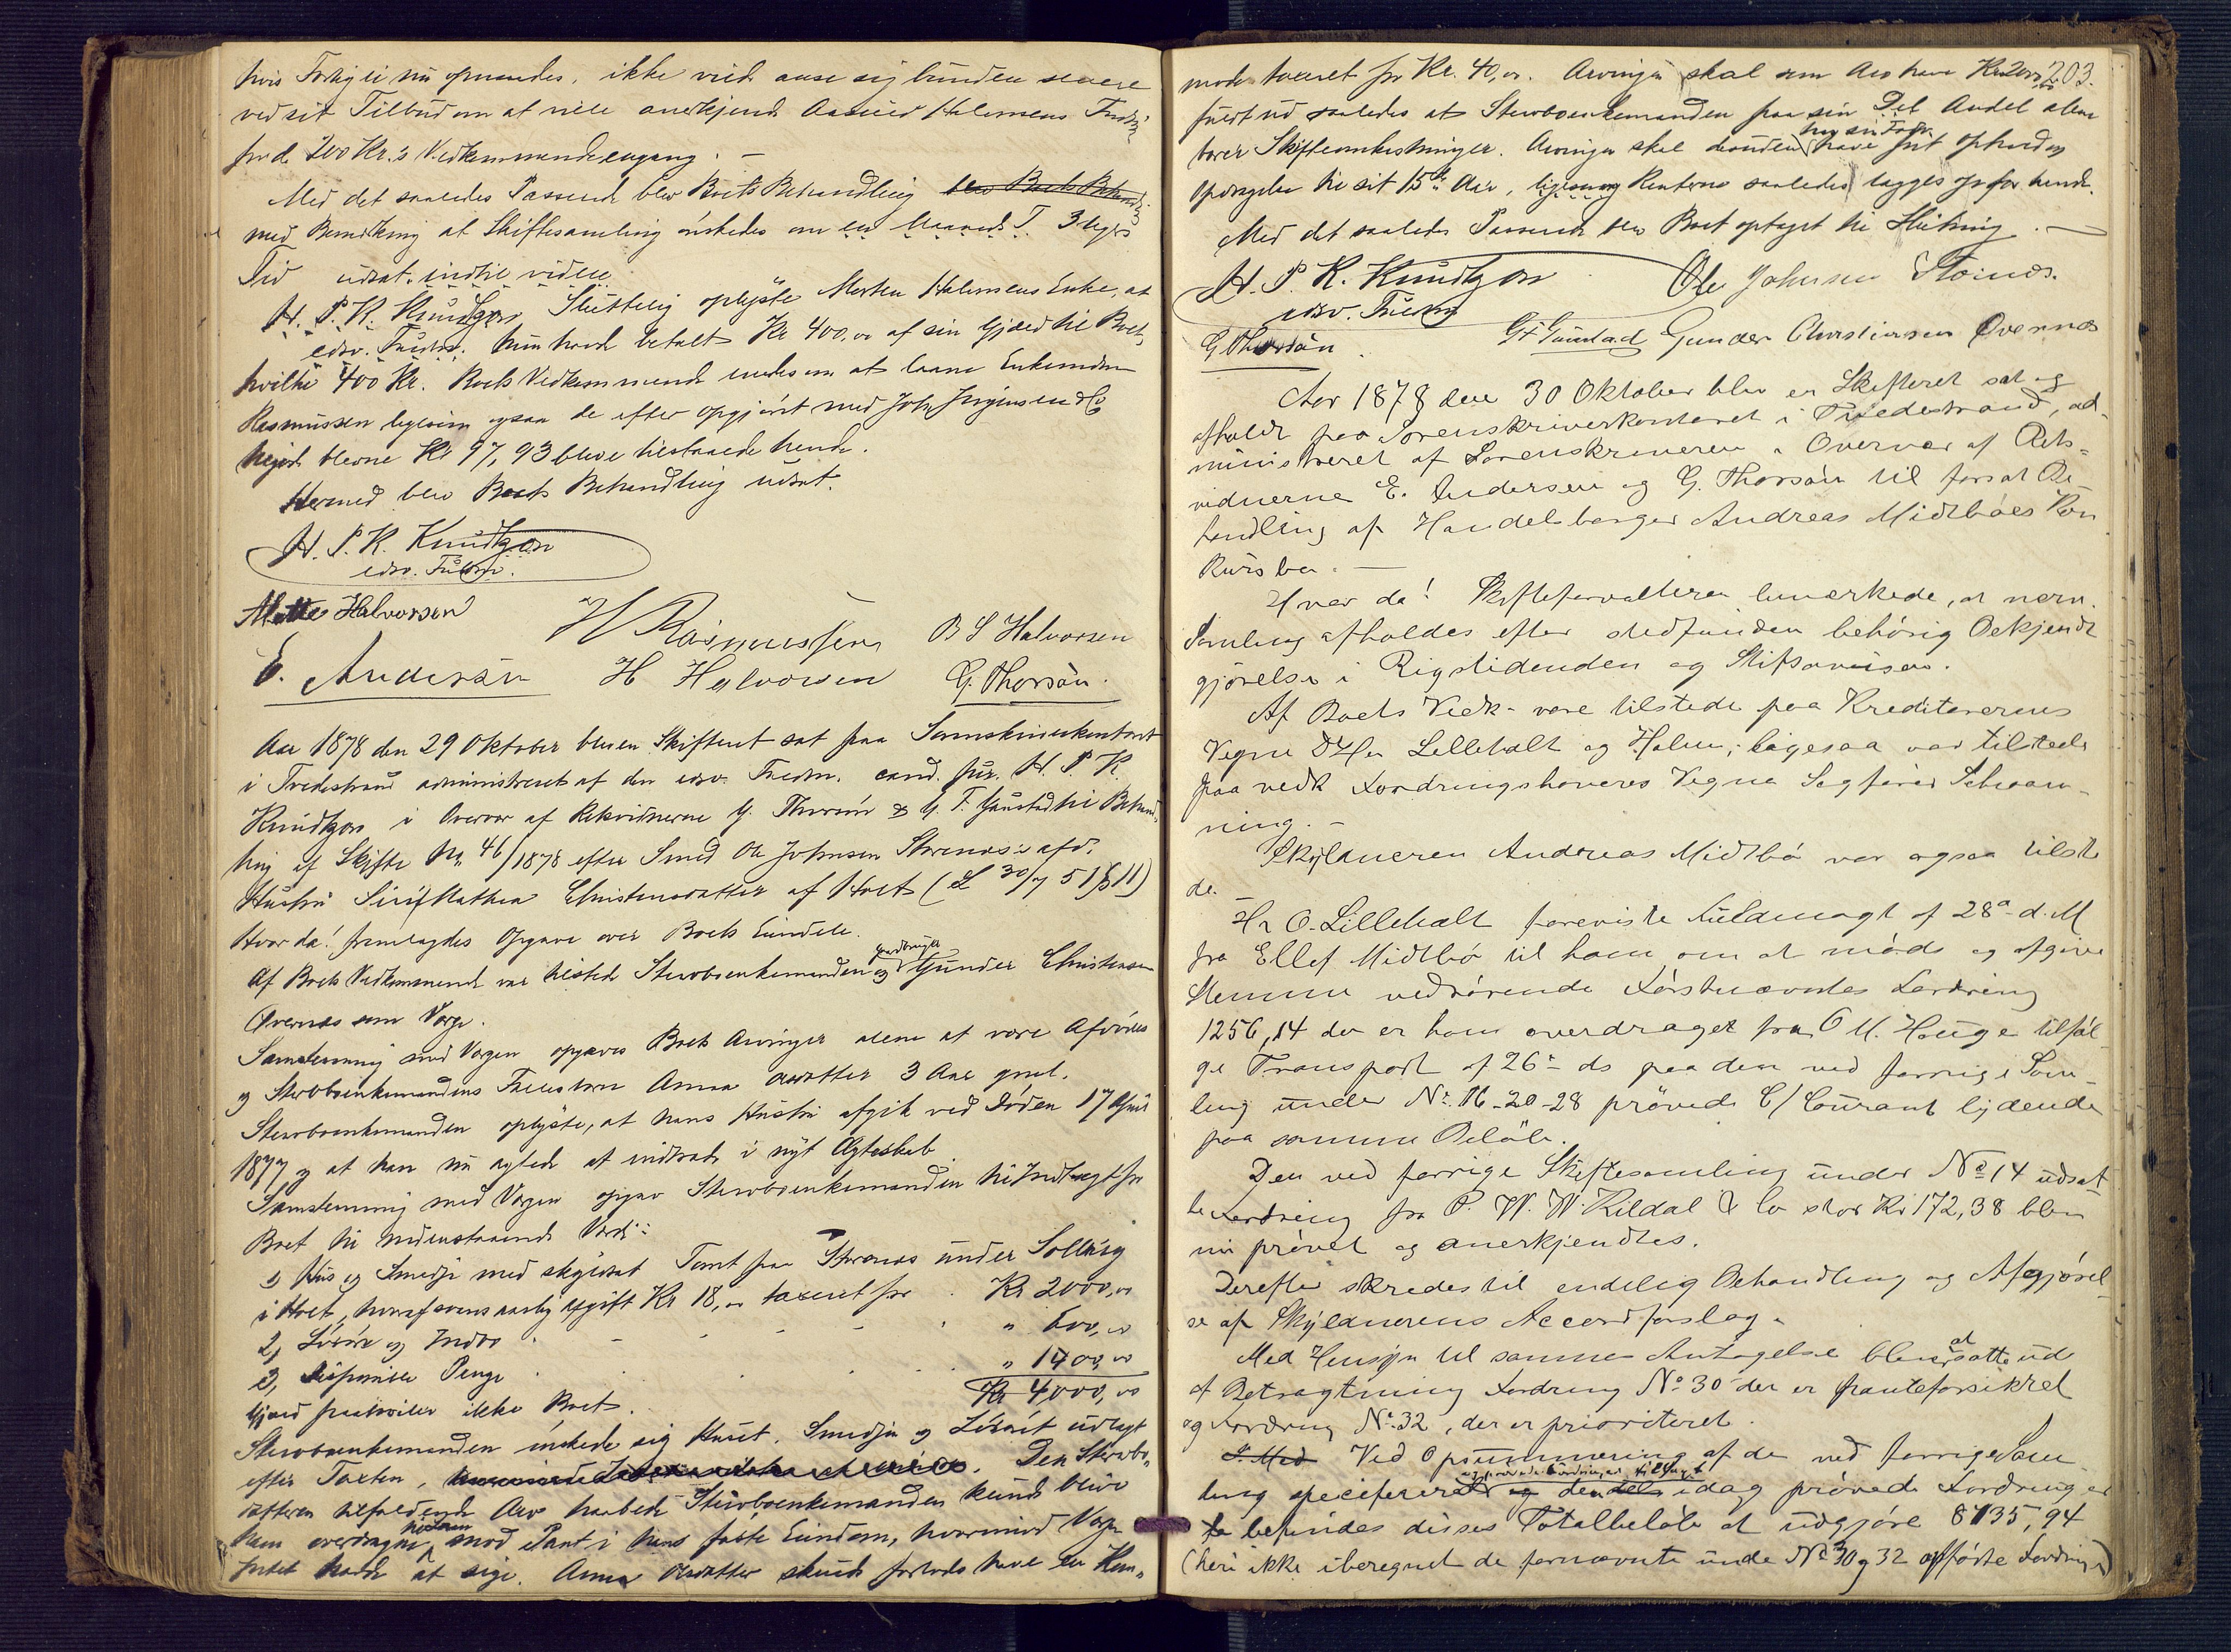 hvis Forlig ei nu opnaaedes, ikke vilde anse sig bunden senere
ved sit Tilbud om at ville anerkjende Aasuld Halvorsens Fordr.
for de 200 Kr.s Vedkommende engang. —
Med det saaledes Passerede blev Boets Behandling blev Boets Behand
med Bemærkning at Skiftesamling ønskedes om en Maaneds T. 3 Ugers
Tid udsat indtil videre.
H. P. K. Knudtzon Sluttelig oplyste Morten Halvorsens Enke, at
edsv. Fuldm. hun havde betalt Kr 400,00 af sin Gjæld til Boet,
hvilke 400 Kr. Boets Vedkommende enedes om at laane Enkemanden
Rasmussen ligesom ogsaa de efter Opgjøret med Joh Jørgensen & Co
blevne Kr 97,93 bleve tilstaaede hende.
Hermed blev Boets Behandling udsat.
H. P. K. Knudtzon
edsv. Fuldm.
Mette Halvorsen
H Rasmussen B S Halvorsen
E. Andersen H Halvorsen G. Thorsøn.
Aar 1878 den 29 Oktober blev en Skifteret sat paa Sorenskriverkontoret
i Tvedestrand administreret af den edsv. Fuldm. cand. jur. H. P. K.
Knudtzon i Overvær af Retsvidnerne G. Thorsøn & G. F. Gaustad til Behand-
ling af Skifte No 46/1878 efter Smed Ole Johnsen Størnæs's afd.
Hustru Siri Mathea Christensdatter af Holt (L 30/7 51 § 11)
Hvor da! fremlagdes Opgave over Boets Eiendele.
Af Boets Vedkommende var tilstede Stervboenkemanden og Gaardbruger Gunder Christensen
Øvernæs som Værge.
Samstemmig med Værgen opgaves Boets Arvinger alene at være Afdødes
og Stervboenkemandens Fællesbarn Anna Olsdatter 3 Aar gml.
Stervboenkemanden oplyste, at hans Hustru afgik ved Døden 17 April
1877 og at han nu agtede at indtræde i nyt Ægteskab.
Samstemmig med Værgen opgav Stervboenkemanden til Indtægt for
Boet til nedenstaaende Værdi:
1) Hus og Smedje med skyldsat Tomt paa Størnæs under Solberg
i Holt, hvoraf svares aarlig Afgift Kr 18,00 taxeret for . Kr 2000,00
2) Løsøre og Indbo . „ 600,00
3) disponible Penge . „ 1400,00
Kr 4000,00
Gjæld paahviler ikke Boet.
Stervboenkemanden ønskede sig Huset, Smedjen og Løsøret udlagt
efter Taxten, . Den Stervbo-
datteren tilfaldende Arv haabede Stervboenkemanden kunde blive
ham overdragne mod Pant i hans faste Eiendom, hvorimod Værgen
Intet havde at sige. Anna Olsdatter skulde forlods have en Kom-
mode taxeret for Kr. 40,00. Arvingen skal som Arv have Kr 2000,00 203.
fuldt ud saaledes at Stervboenkemanden paa sin Del Andel alene
bærer Skifteomkostninger. Arvingen skal desuden hos sin Fader have frit Ophold og
Opdragelse til sit 15de Aar, ligesaa Renterne saaledes lægges op for hende.
Med det saaledes Passerede blev Boet optaget til Slutning. —
H. P. K. Knudtzon Ole Johnsen Stornæs.
edsv. Fuldm
G Thorsøn G F Gaustad Gunder Christiensen Øvernæs
Aar 1878 den 30 Oktober blev en Skifteret sat og
afholdt paa Sorenskriverkontoret i Tvedestrand, ad-
ministreret af Sorenskriveren i Overvær af Rets-
vidnerne E. Andersen og G. Thorsøn til forsat Be-
handling af Handelsborger Andreas Midtbøes Kon
kursbo. —
Hvor da! Skifteforvalteren bemærkede, at nærv.
Samling afholdes efter stedfunden behørig Bekjendt
gjørelse i Rigstidenden og Stiftsavisen.
Af Boets Vedk. vare tilstede paa Kreditorernes
Vegne DHrr Lilleholt og Holm; ligesaa var tilstede
paa vedk Fordringshaveres Vegne Sagfører Schaan-
ning. —
Skyldneren Andreas Midtbø var ogsaa tilste
de.
Hr O. Lilleholt foreviste Fuldmagt af 28de d. M
fra Ellef Midtbø til ham om at møde og afgive
Stemme vedrørende Førstnævntes Fordring
1256,14 der er ham overdraget fra O M. Hauge ifølge tilføl
ge Transport af 26de ds paa den ved forrige Sam-
ling under No 16-20-28 prøvede C/Courant lydende
paa samme Beløb.
Den ved forrige Skiftesamling under No 14 udsat-
te Fordring fra P. W. W. Kildal & Co stor Kr 172,38 blev
nu prøvet og anerkjendtes.
Derefter skredes til endelig Behandling og Afgjørel-
se af Skyldnerens Accordforslag.
Med Hensyn til sammes Antagelse blev at satte ud
af Betragtning Fordring No 30 der er panteforsikret
og Fordring No 32, der er prioriteret.
Med Ved Opsummering af de ved forrige Sam
ling specificerede og prøvede Fordringer tillagt og den idag prøvede Fordringer
befindes disses Totalbeløb at udgjøre 8735,94
(heri ikke iberegnet de fornævnte under No 30 og 32 opførte Fordringer)